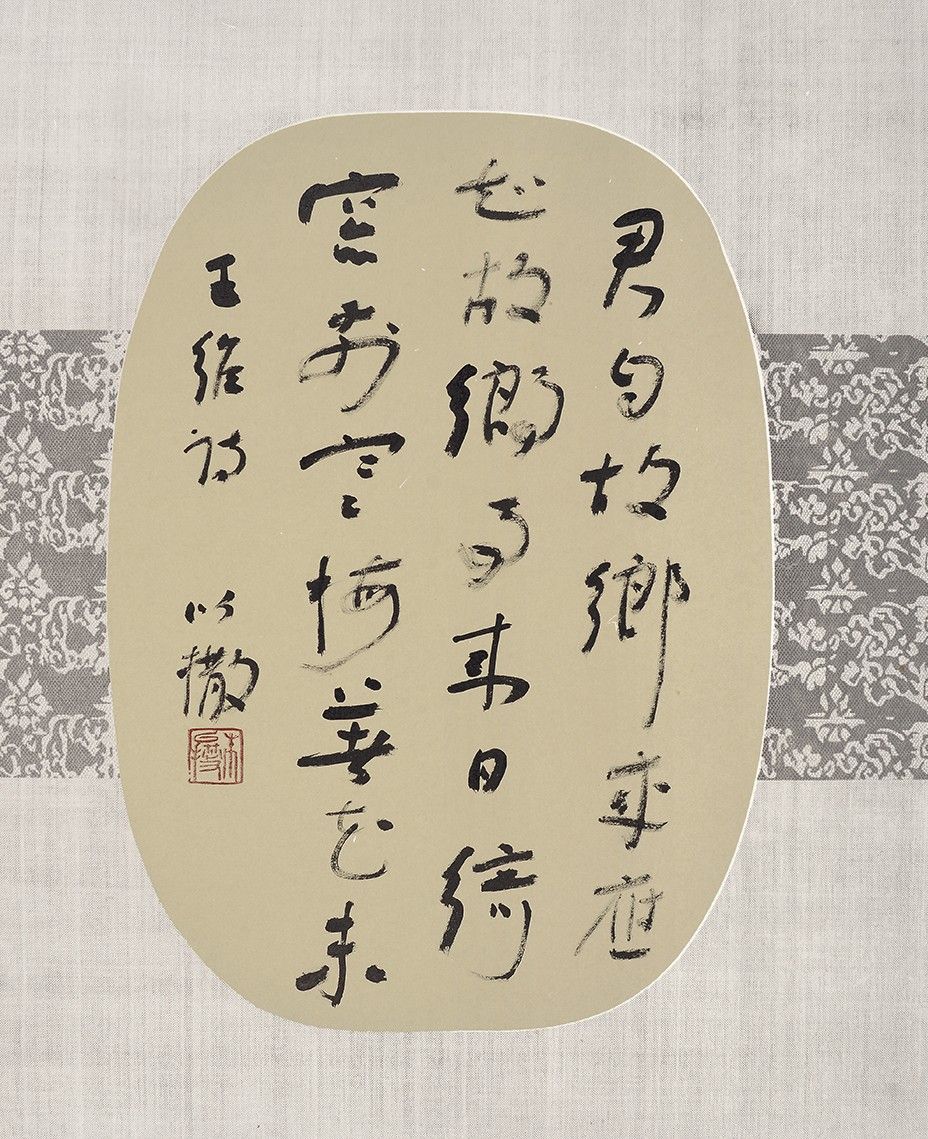 君自故鄉來應
知故鄉事來日綺
窓前寒梅著花未
王維詩 以撒